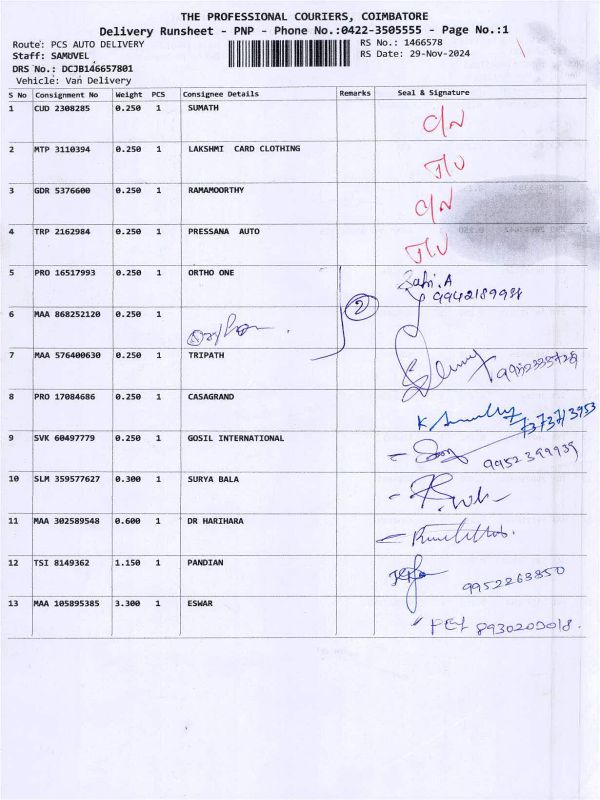 THE PROFESSIONAL COURIERS, COIMBATORE
Delivery Runsheet - PNP - Phone No.:0422-3505555 - Page No.:1
Route: PCS AUTO DELIVERY RS No.: 1466578
Staff: SAMUVEL RS Date: 29-Nov-2024
DRS No.: DCJB146657801
Vehicle: Van Delivery
S No Consignment No Weight PCS Consignee Details Remarks Seal & Signature
1 CUD 2308285 0.250 1 SUMATH C/N
2 MTP 3110394 0.250 1 LAKSHMI CARD CLOTHING
3 GDR 5376600 0.250 1 RAMAMOORTHY C/N
4 TRP 2162984 0.250 1 PRESSANA AUTO
5 PRO 16517993 0.250 1 ORTHO ONE
2
6 MAA 868252120 0.250 1
7 MAA 576400630 0.250 1 TRIPATH
8 PRO 17084686 0.250 1 CASAGRAND
9 SVK 60497779 0.250 1 GOSIL INTERNATIONAL
10 SLM 359577627 0.300 1 SURYA BALA
11 MAA 302589548 0.600 1 DR HARIHARA
12 TSI 8149362 1.150 1 PANDIAN 9952263850
13 MAA 105895385 3.300 1 ESWAR 8930200018.